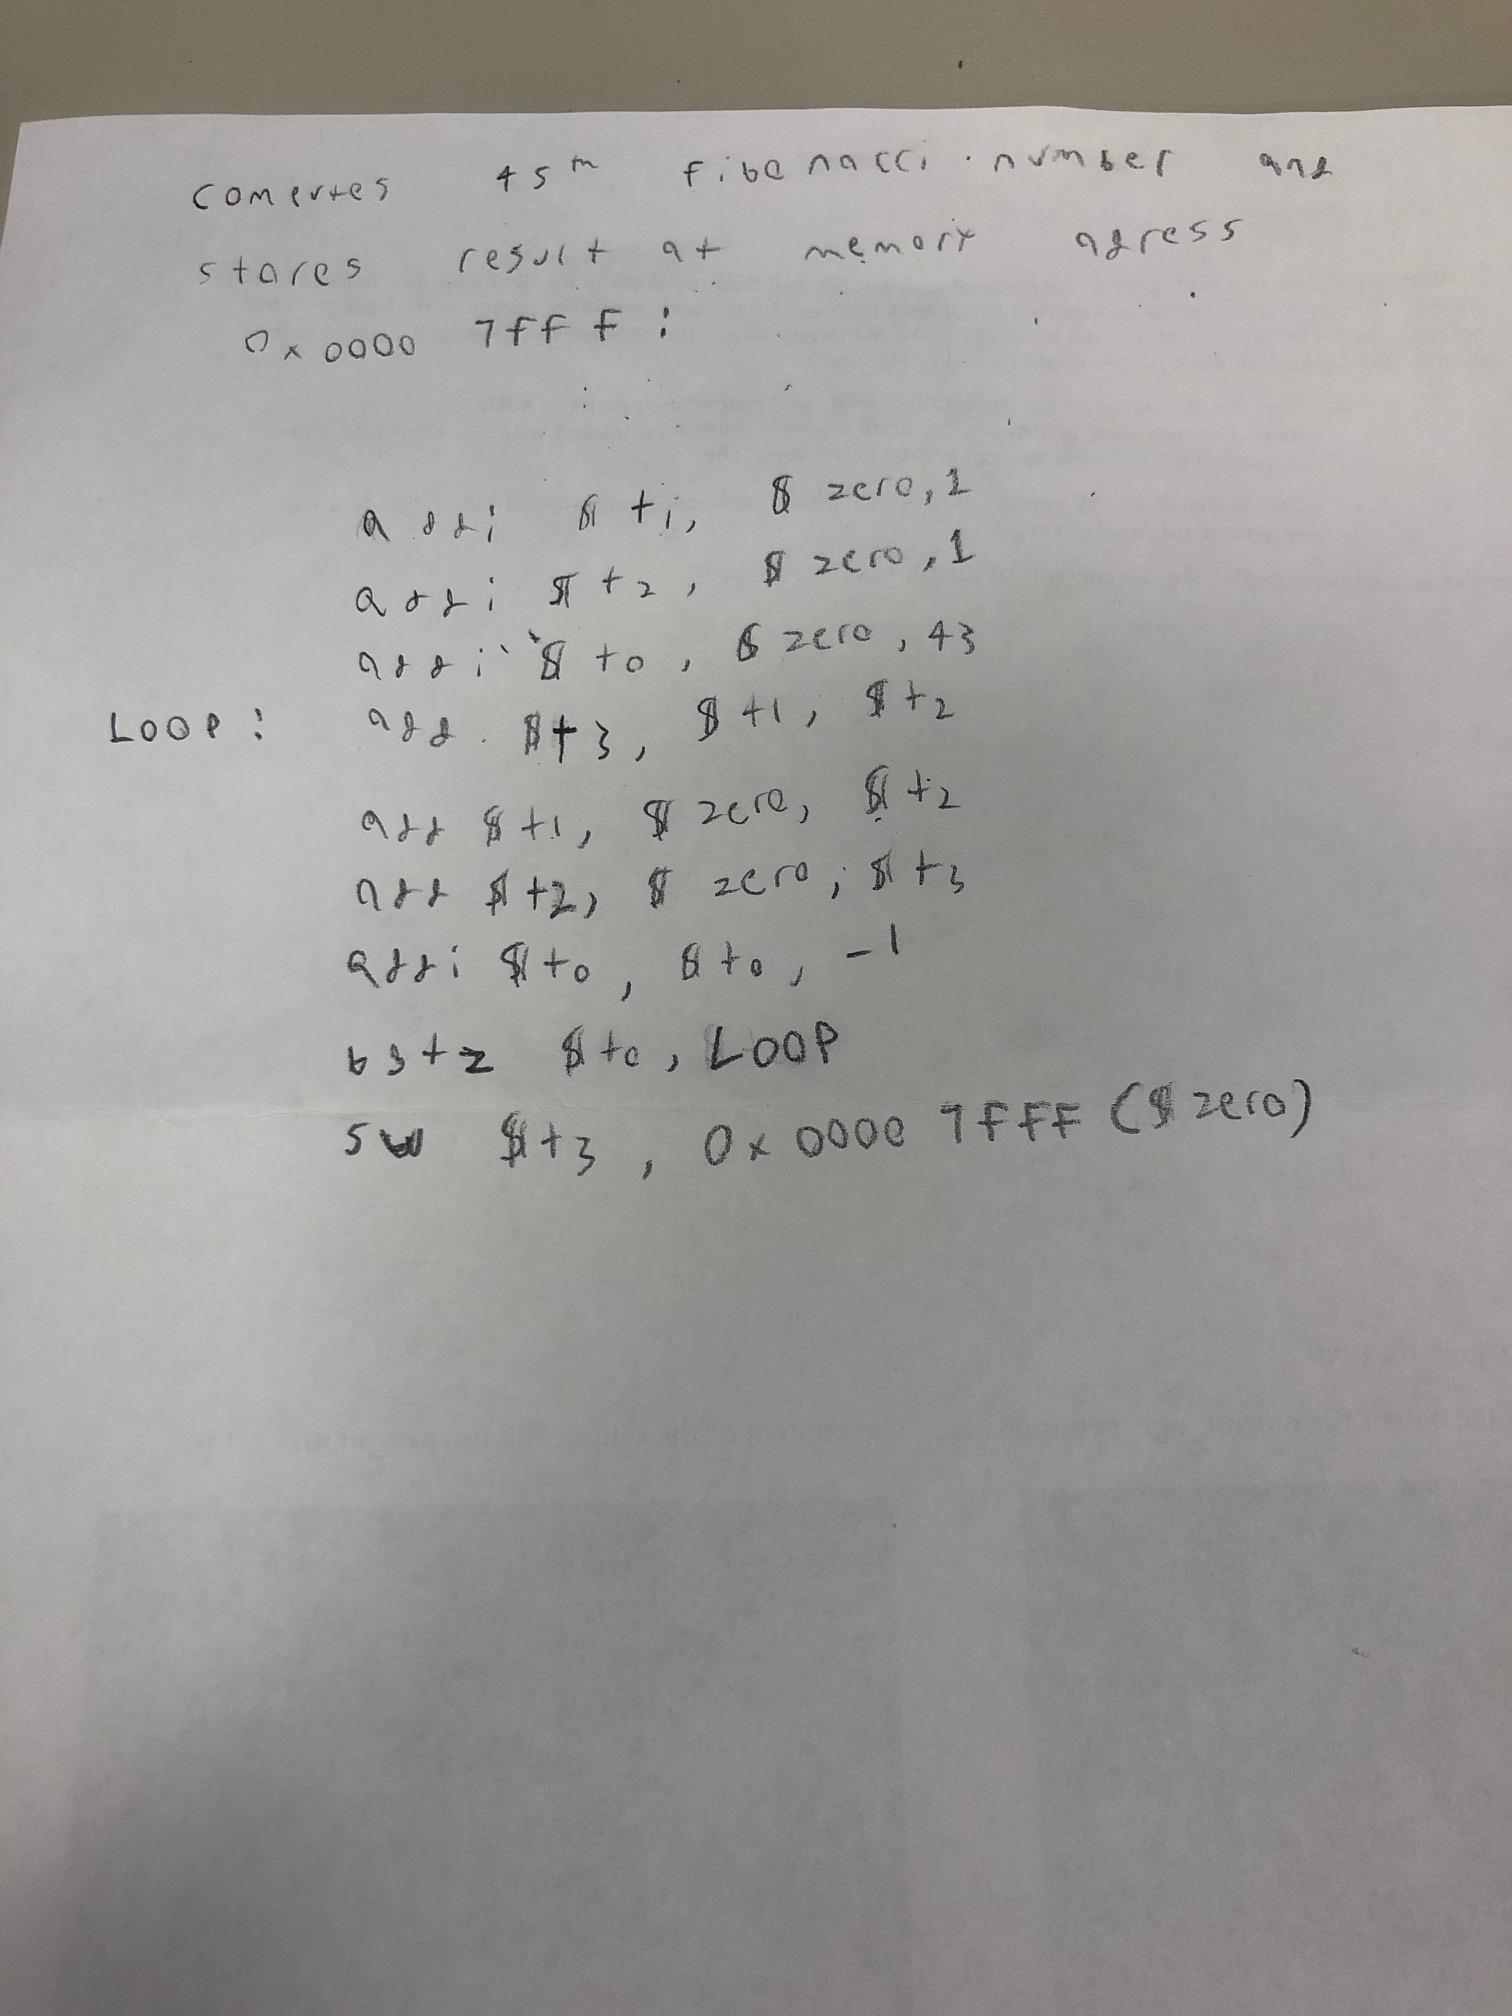 computes 45th fibonacci number and
stores result at memory adress
0x0000 7FFF:
addi $t1, $zero, 1
addi $t2, $zero, 1
addi $t0, $zero, 43
LOOP: add $t3, $t1, $t2
add $t1, $zero, $t2
add $t2, $zero, $t3
addi $t0, $t0, -1
bgtz $t0, LOOP
sw $t3, 0x0000 7FFF ($zero)